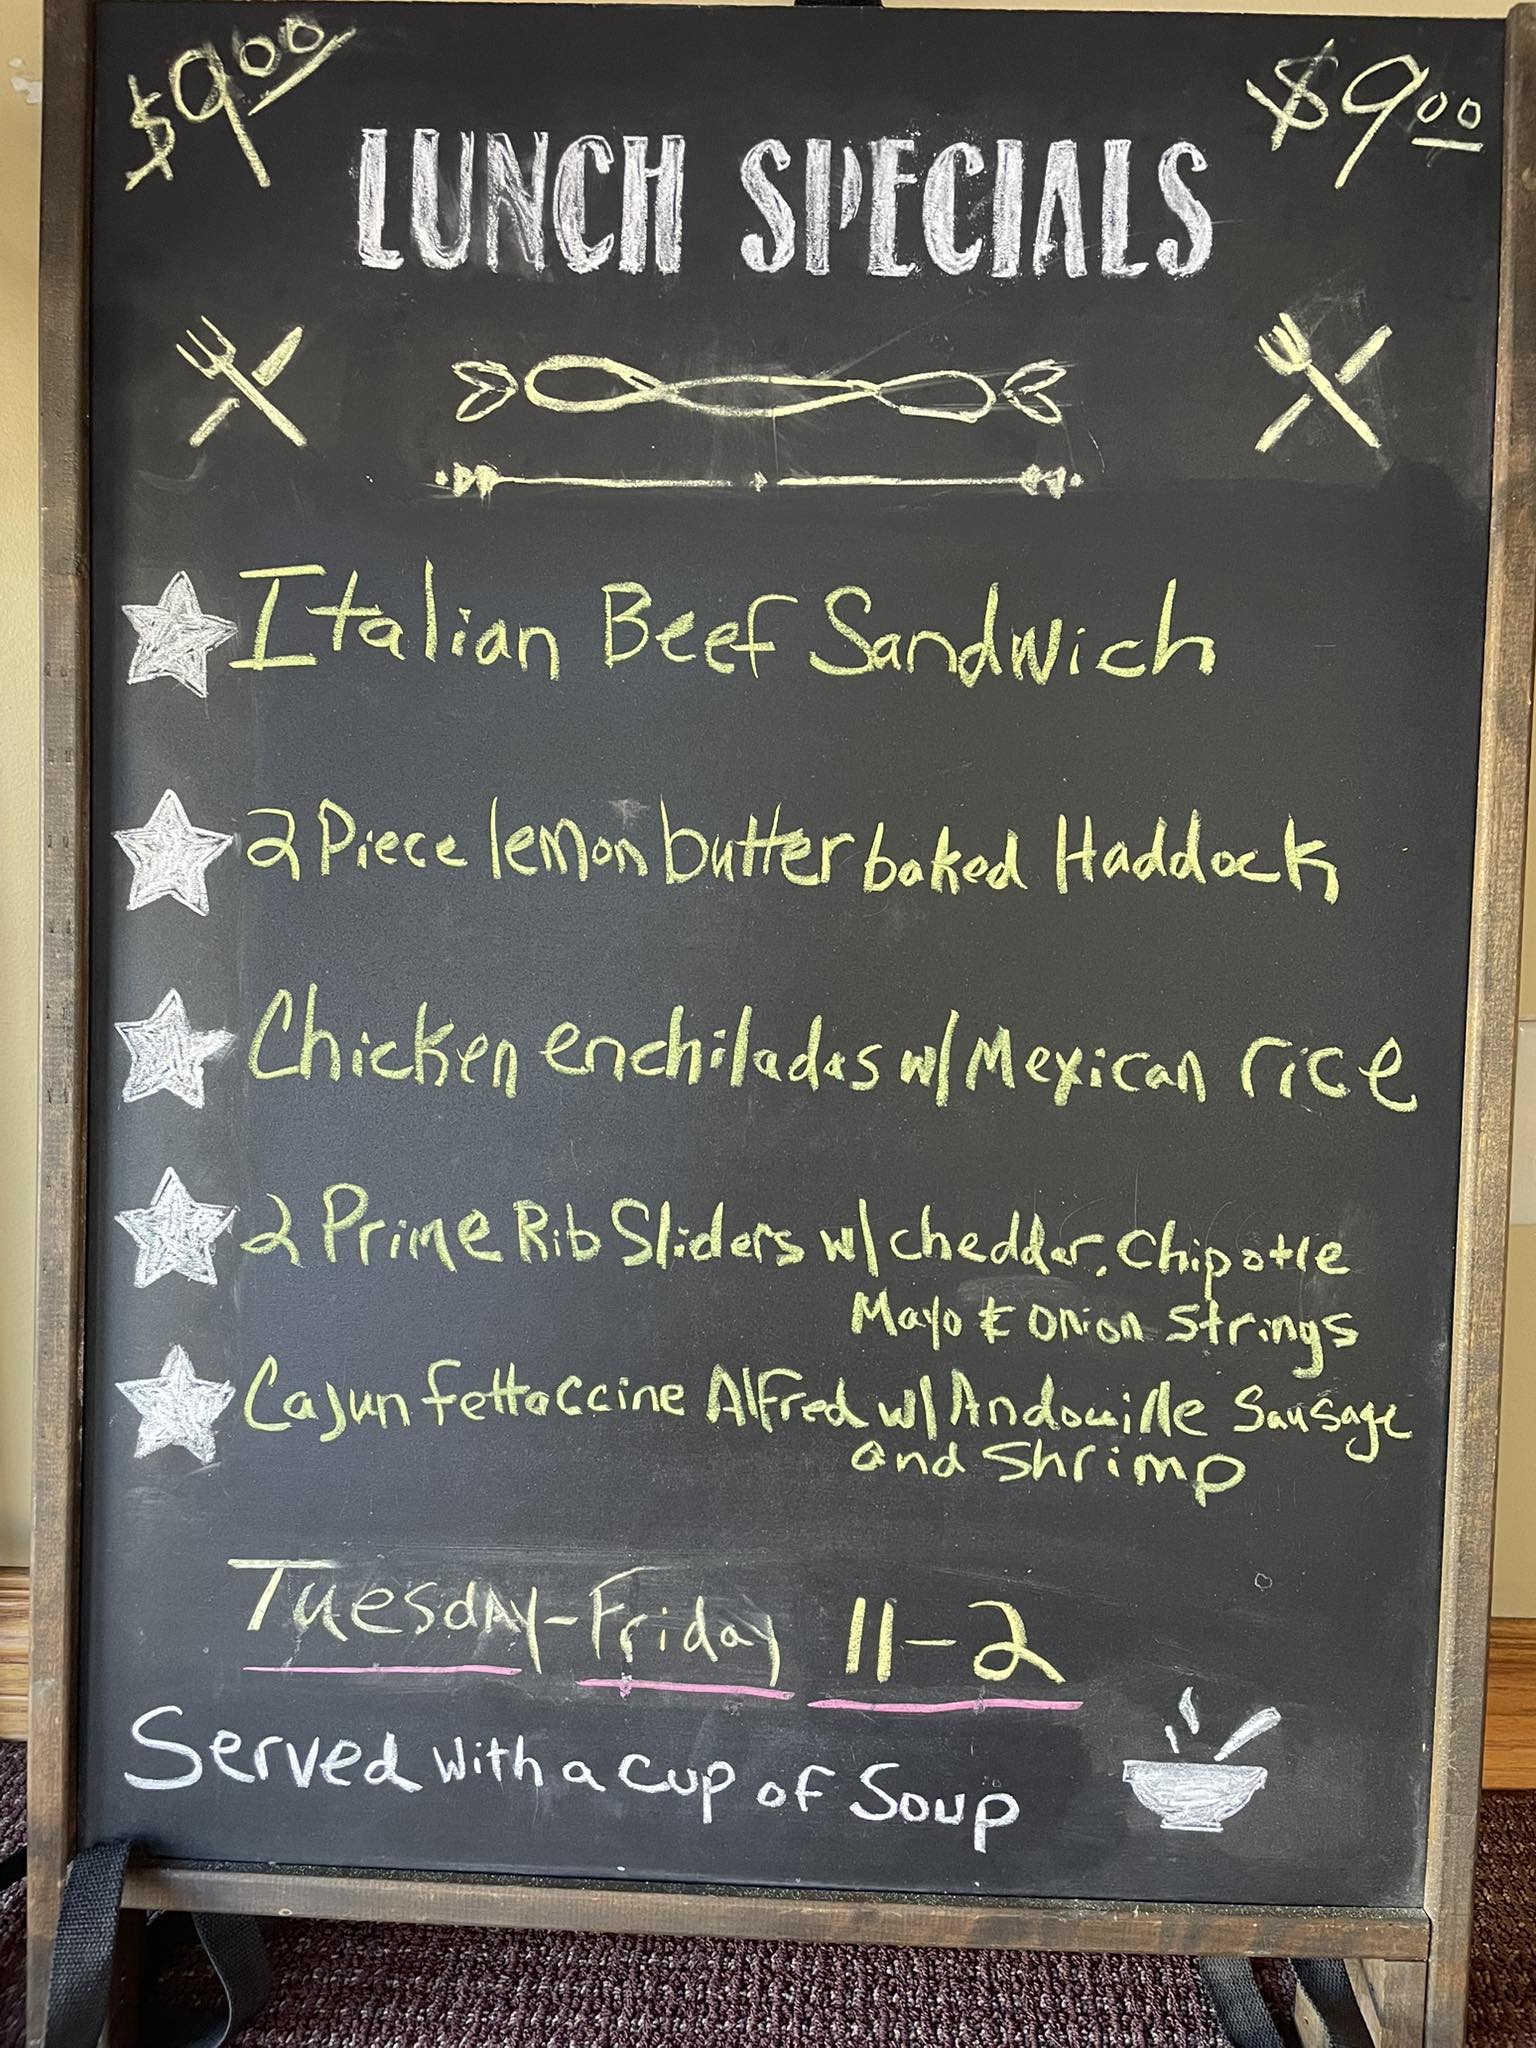 $9.00 $9.00
LUNCH SPECIALS
Italian Beef Sandwich
2 Piece lemon butter baked Haddock
Chicken enchiladas w/ Mexican rice
2 Prime Rib Sliders w/ cheddar, Chipotle
Mayo & Onion Strings
Cajun fettaccine Alfred w/ Andouille Sausage
and Shrimp
Tuesday-Friday 11-2
Served with a cup of Soup